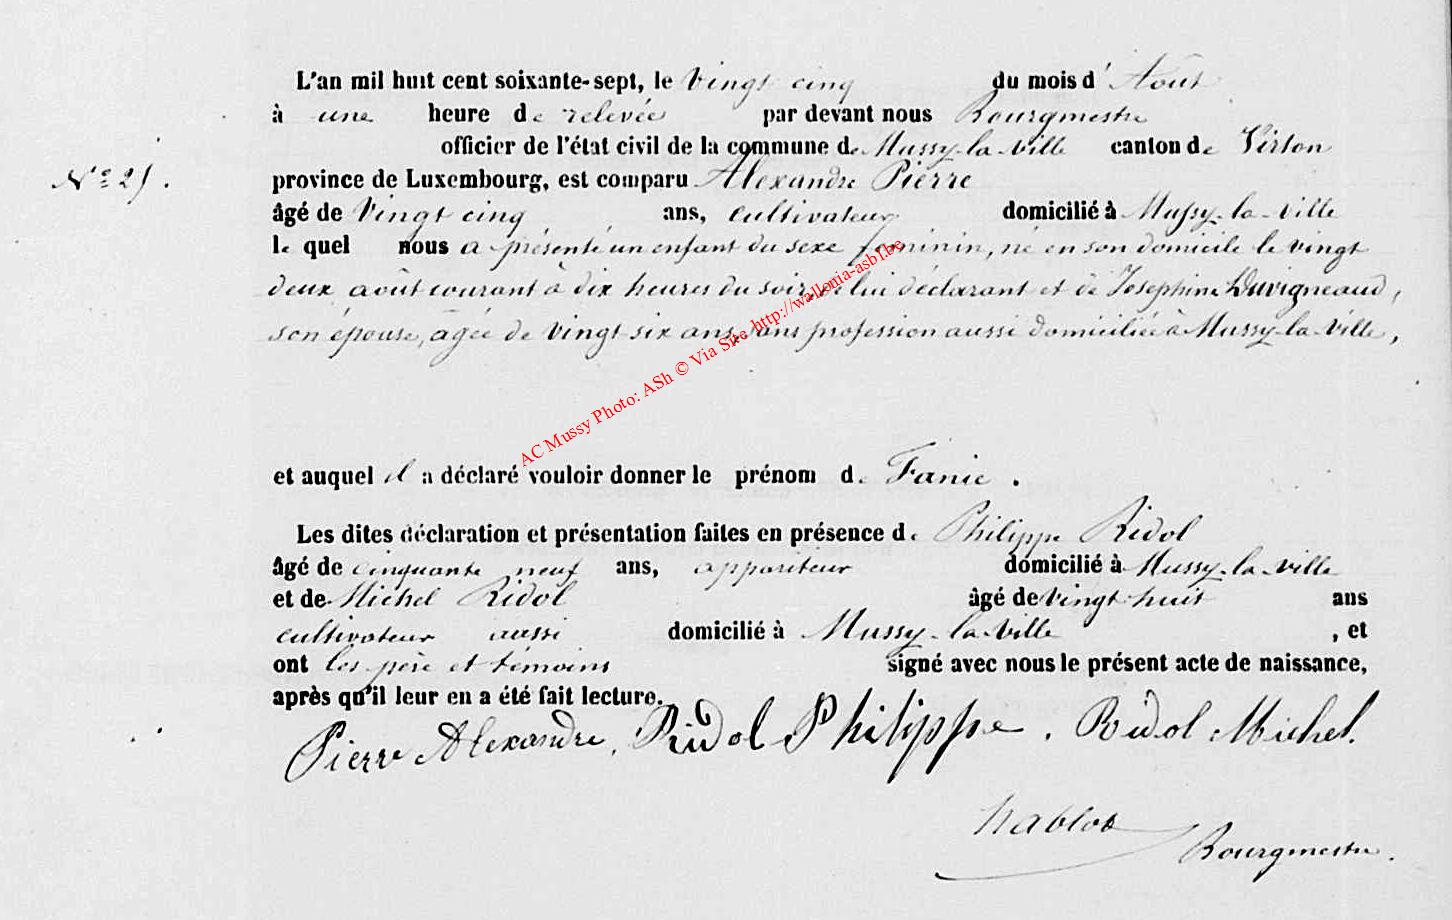 L'an mil huit cent soixante-sept, le vingt cinq du mois d'Août
à une heure de relevée par devant nous Bourgmestre
officier de l'état civil de la commune de Mussy-la-Ville canton de Virton
province de Luxembourg, est comparu Alexandre Pierre
âgé de vingt cinq ans, cultivateur domicilié à Mussy-la-Ville
le quel nous a présenté un enfant du sexe féminin, né en son domicile le vingt
deux août courant à dix heures du soir, de lui déclarant et de Joséphine Duvigneaud,
son épouse, âgée de vingt six ans, sans profession aussi domiciliée à Mussy-la-Ville,
et auquel il a déclaré vouloir donner le prénom de Fanie.
Les dites déclaration et présentation faites en présence de Philippe Ridol
âgé de cinquante neuf ans, appariteur domicilié à Mussy-la-Ville
et de Michel Ridol âgé de vingt huit ans
cultivateur aussi domicilié à Mussy-la-Ville, et
ont les père et témoins signé avec nous le présent acte de naissance,
après qu'il leur en a été fait lecture.
Pierre Alexandre. Ridol Philippe. Ridol Michel.
Bourgmestre.
AC Mussy Photo: ASh © Via Site http://wallonia-asbl.be